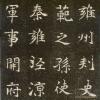 雍州刺史
範之孫使
秦雍涇涼
軍事開府